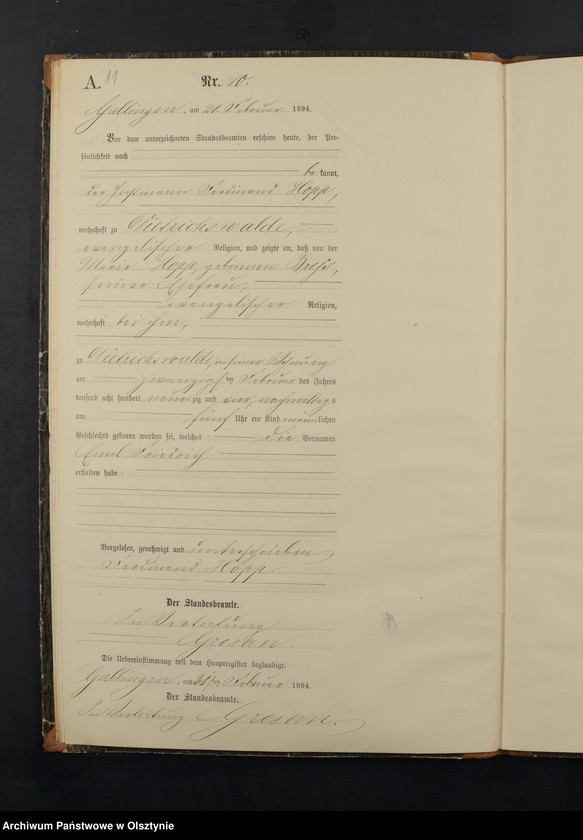 A. 11 Nr. 10.
Gallingen, am 21 Februar 1894.
Vor dem unterzeichneten Standesbeamten erschien heute, der Per-
sönlichkeit nach
be kannt,
der Ferdinand Hopp,
wohnhaft zu Dietrichswalde,
evangelischer Religion, und zeigte an, daß von der
Marie Hopp, geborenen
seiner Ehefrau,
evangelischer Religion,
wohnhaft bei ihm,
zu Dietrichswalde, in seiner Wohnung
am zwanzigsten Februar des Jahres
tausend acht hundert neunzig und vier, nachmittags
um fünf Uhr ein Kind männlichen
Geschlechts geboren worden sei, welches die Vornamen
Emil Friedrich
erhalten habe.
Vorgelesen, genehmigt und unterschrieben
Ferdinand Hopp.
Der Standesbeamte.
In Vertretung
Grosan.
Die Uebereinstimmung mit dem Hauptregister beglaubigt.
Gallingen, am 21ten Februar 1894.
Der Standesbeamte.
In Vertretung Grosan.
Archiwum Państwowe w Olsztynie